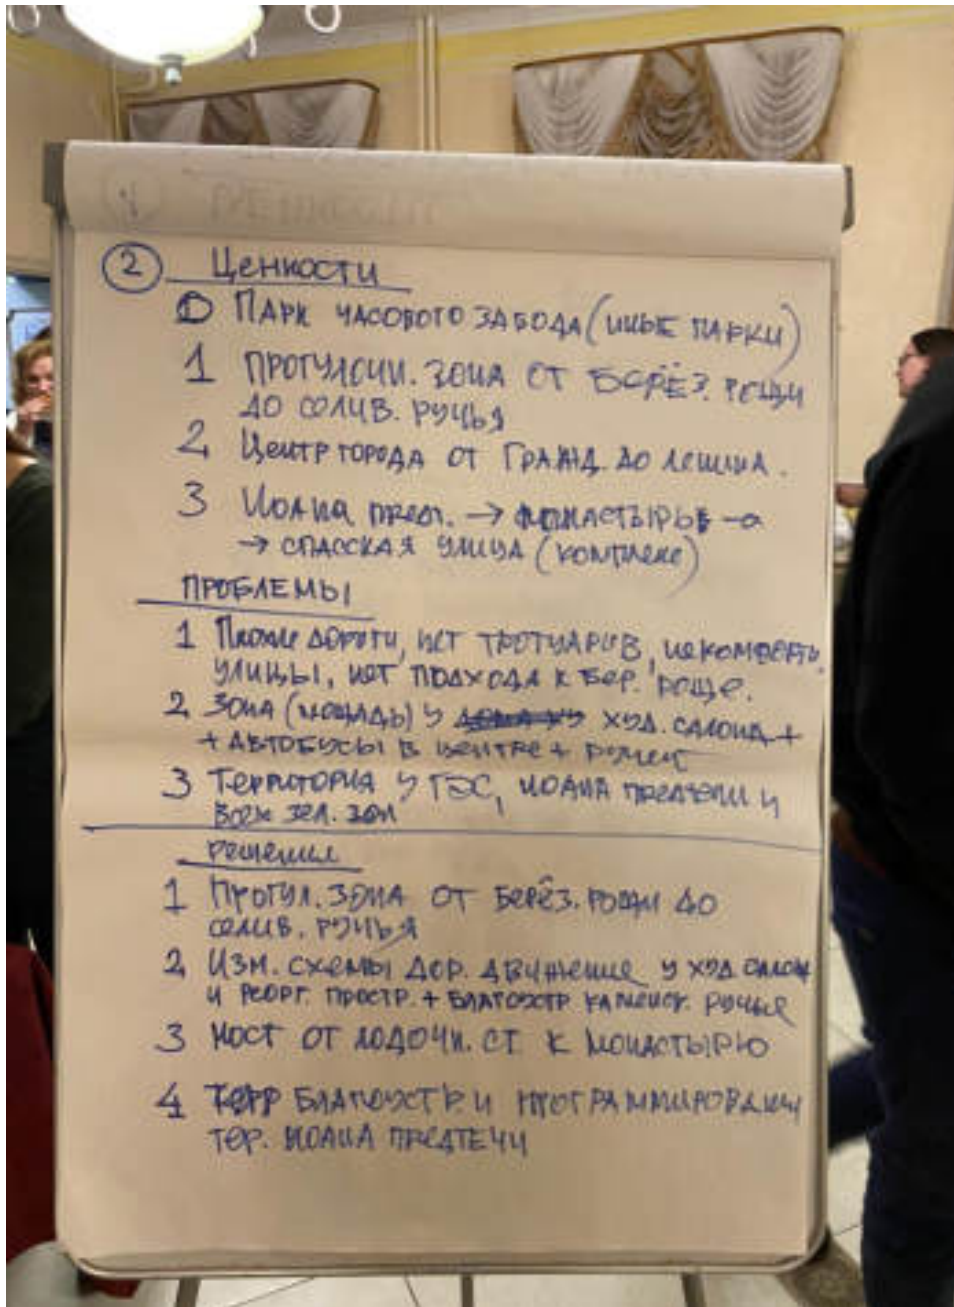 2 Ценности
0 Парк часового завода (иные парки)
1 Прогулочн. зона от Берёз. рощи
до селив. ручья
2 Центр города от Гражд. до Ленина.
3 Иоана пред. → монастырь →
→ Спасская улица (комплекс)
Проблемы
1 Плохие дороги, нет тротуаров, некомфортн.
улицы, нет подхода к бер. роще.
2 Зона (площадь) у худ. салона +
+ автобусы в центре +
3 Территория у ГЭС, Иоана Предтечи и
всех зел. зон
Решения
1 Прогул. зона от Берёз. рощи до
селив. ручья
2 Изм. схемы дор. движение у худ. салон
и реорг. простр. + благоустр. каменск. ручья
3 Мост от лодочн. ст. к монастырю
4 Терр благоустр. и программировании
тер. Иоана Предтечи